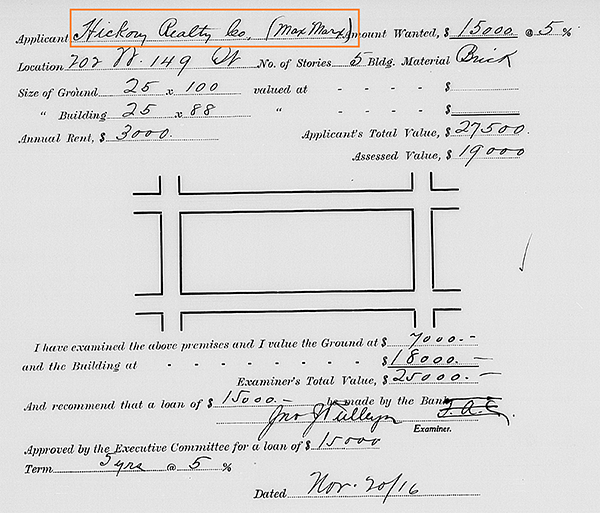 Applicant Hickory Realty Co, (Max Marx) Amount Wanted, $ 15000 @ 5 %
Location 702 W. 149 St No. of Stories 5 Bldg. Material Brick
Size of Ground 25 x 100 valued at - - - - $
" Building 25 x 88 " - - - - $
Annual Rent, $ 3000. Applicant's Total Value, $ 27500.
Assessed Value, $ 19000
I have examined the above premises and I value the Ground at $ 7000.-
and the Building at - - - - - - - $ 18000.-
Examiner's Total Value, $ 25000.-
And recommend that a loan of $ 15000.- be made by the Bank
Jno J Pulleyn
Examiner.
Approved by the Executive Committee for a loan of $ 15000
Term 5 yrs @ 5 %
Dated Nov. 20/16